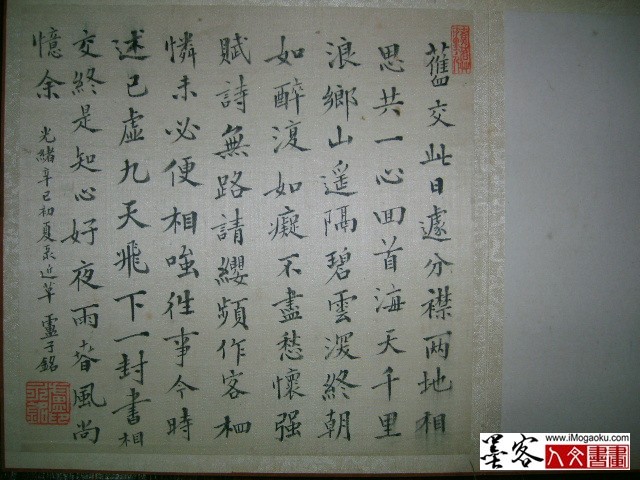 舊交此日遽分襟兩地相
思共一心回首海天千里
浪鄉山遥隔碧雲深終朝
如醉復如癡不盡愁懷强
賦詩無路請纓頻作客
憐未必便相嗤往事今時
述已虛九天飛下一封書相
交終是知心好夜雨春風尚
憶余
光緒辛巳初夏近草 盧子銘
www.iMogaoku.com
墨客
人文書畫